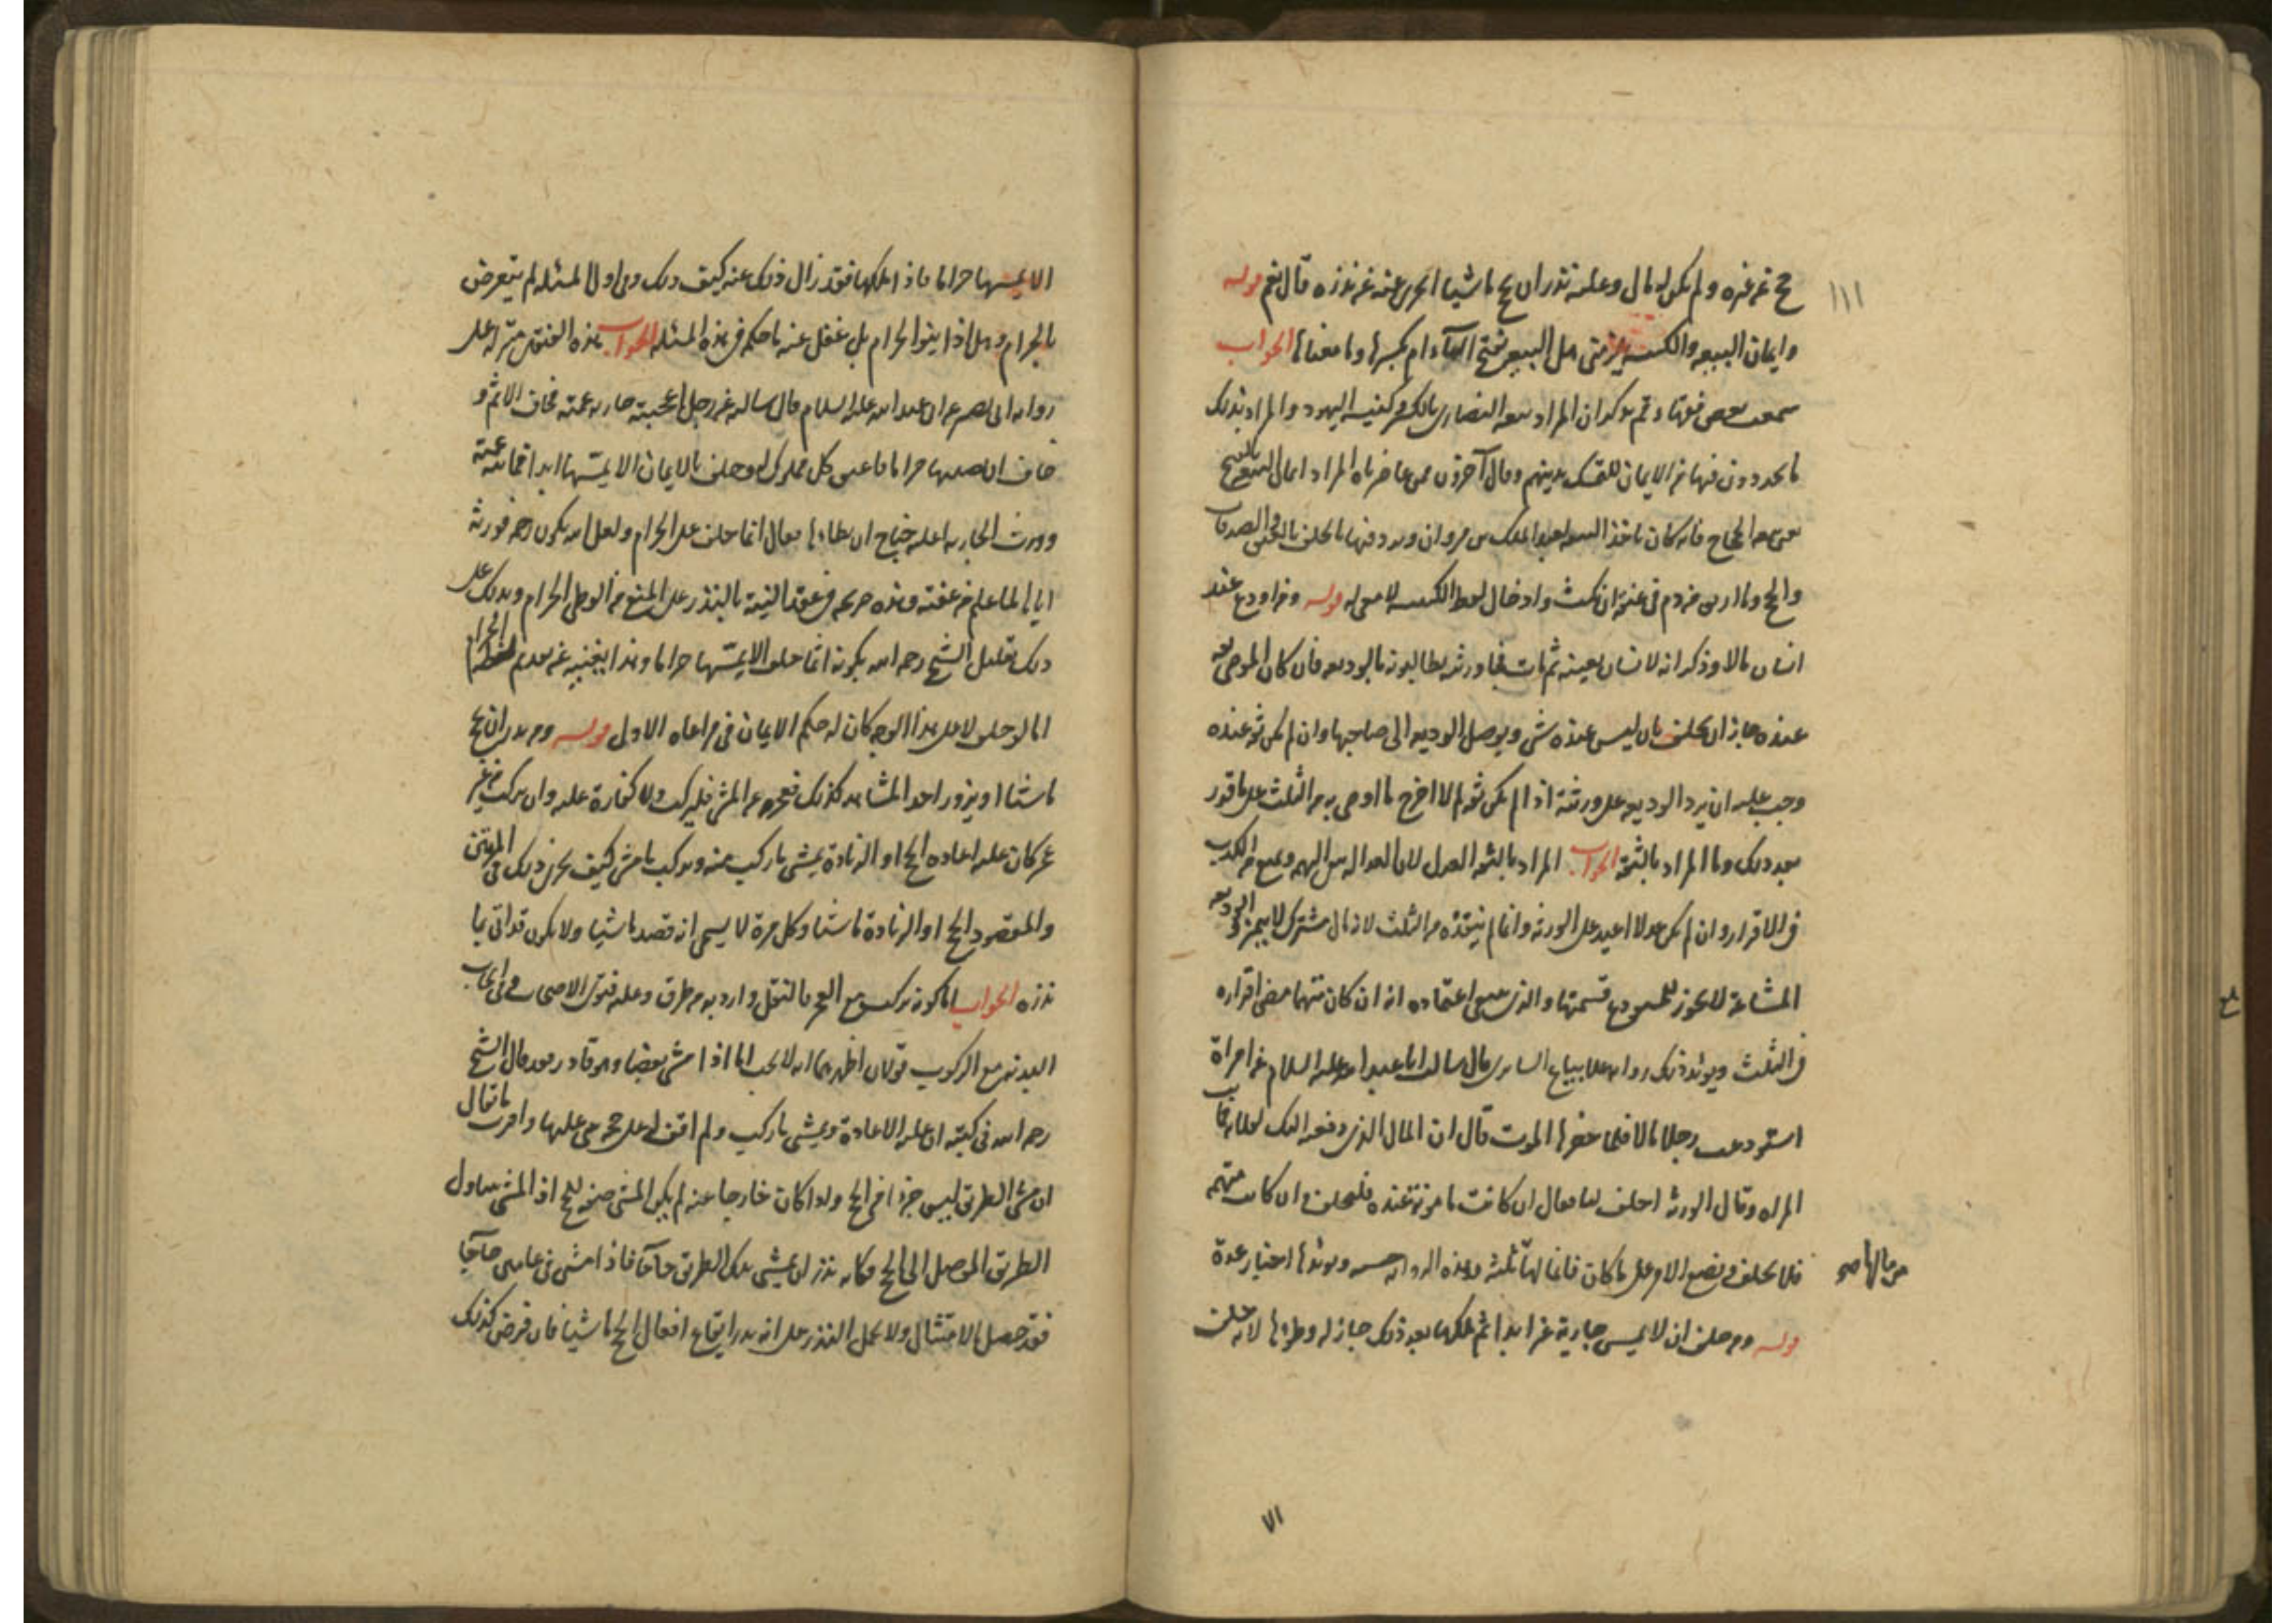 ١١١
حج عن غيره ولم يكن له مال وعليه نذر ان يحج ماشيا ايجزى عنه عن نذره قال نعم قوله
وايمان البيعه والكنيسه يلزمنى هل البيعه بفتح الباء ام بكسرها وما معناها الجواب
سمعت بعض فقهاء يذكر ان المراد بيعه النصارى بالكسر وكنيسه اليهود والمراد بذلك
ما يحددون فيها من الايمان للتمسك بدينهم وقال آخرون ممن عاصرناه المراد ايمان البيعه بالفتح
يعنى بيعه الحجاج فانه كان ياخذ البيعه لعبد الملك بن مروان ويردد فيها بالحلف بالعتق والصدقات
والحج وما اريق من دم فى عنقه ان نكث وادخال لفظ الكنيسه لا معنى له قوله ومن اودع عند
انسان مالا وذكر انه لانسان بعينه ثم مات فجاء ورثته يطالبونه بالوديعه فان كان الموصى ثقه
عنده جاز ان يحلف بان ليس عنده شى ويوصل الوديعه الى صاحبها وان لم يكن ثقه عنده
وجب عليه ان يرد الوديعه على ورثته اذا لم يكن ثقه لم لا اخرج ما اوصى به من الثلث على ما قرر
بعد ذلك وما المراد بالثقة الجواب المراد بالثقه العدل لان العداله تزيل التهمه وتمنع من الكذب
فى الاقرار وان لم يكن عدلا اعيد على الورثه وانما لم ينفذه من الثلث لانه مال مشترك لا يميز الوديعه
المشاعة لا يجوز للمستودع قسمتها والذى ينبغى اعتماده انه ان كان متهما مضى اقراره
فى الثلث ويؤيد ذلك روايه العلا بياع السابرى قال سالت ابا عبد الله عليه السلام عن امراة
استودعت رجلا مالا فلما حضرها الموت قال ان المال الذى دفعته اليك لفلانه فماتت
المراه وقال الورثه احلف لنا فقال ان كانت مامونة عنده فليحلف وان كانت متهمه
فلا يحلف ويضع الامر على ما كان فانما لها ثلثه وهذه الروايه حسنه ويؤيدها اخبار عدة
من مالها صح
قوله ومن حلف ان لا يمس جارية غيره ابدا ثم ملكها بعد ذلك جاز له وطؤها لانه حلف
٧١
الا يمسها حراما فاذا ملكها فقد زال ذلك عنه كيف ذلك وفى اول المسئله لم يتعرض
بالحرام وهل اذا ينو الحرام بل غفل عنه ما حكمه فى هذه المسئله الجواب هذه الفتوى منزله على
روايه ابى بصير عن ابى عبد الله عليه السلام قال سالته عن رجل اعجبته جاريه عمته فخاف الاثم و
خاف ان يصيبها حراما فاعتق كل مملوك له وحلف بالايمان الا يمسها ابدا فماتت عمته
وورث الجاريه اعليه جناح ان يطاها فقال انما حلف على الحرام ولعل الله يكون رحمه فورثه
اياها لما علم من عفته وهذه صريحه فى عقد النيه بالنذر على المنع من الوطى الحرام ويدلك على
ذلك تعليل الشيخ رحمه الله بكونه انما حلف الا يمسها حراما وهذا يغنيه عن تقديم لفظ الحرام
اما لو حلف لا على هذا الوجه كان له حكم الايمان فى مراعاه الاولى قوله ومن نذر ان يحج
ماشيا او يزور احد المشاهد كذلك فعجز عن المشى فليركب ولا كفارة عليه وان ركب من غير
عجز كان عليه اعاده الحج او الزيادة يمشى ما ركب منه ويركب ما مشى كيف يجزى ذلك فى المرتين
والمقصود الحج او الزيادة ماشيا وكل مرة لا يسمى انه قصد ماشيا ولا يكون قد اتى بما
نذره الجواب اما كونه يركب مع العجز فالنقل وارد به من طرق وعليه فتوى الاصحاب وفى ايجاب
البدنه مع الركوب قولان اظهرهما انه لا يجب اما اذا مشى بعضا وهو قادر فقد قال الشيخ
رحمه الله فى كتبه ان عليه الاعادة ويمشى ما ركب ولم اقف له على حجه بنى عليها واقرب ما يقال
ان مشى الطريق ليس جزءا من الحج ولما كان خارجا عنه لم يكن المشى صفه للحج اذ المشى يتناول
الطريق الموصل الى الحج فكانه نذر ان يمشى تلك الطريق حاجا فاذا مشى فى عامين حاجا
فقد حصل الامتثال ولا يحمل النذر على انه نذر ايقاع افعال الحج ماشيا فان فرض كذلك